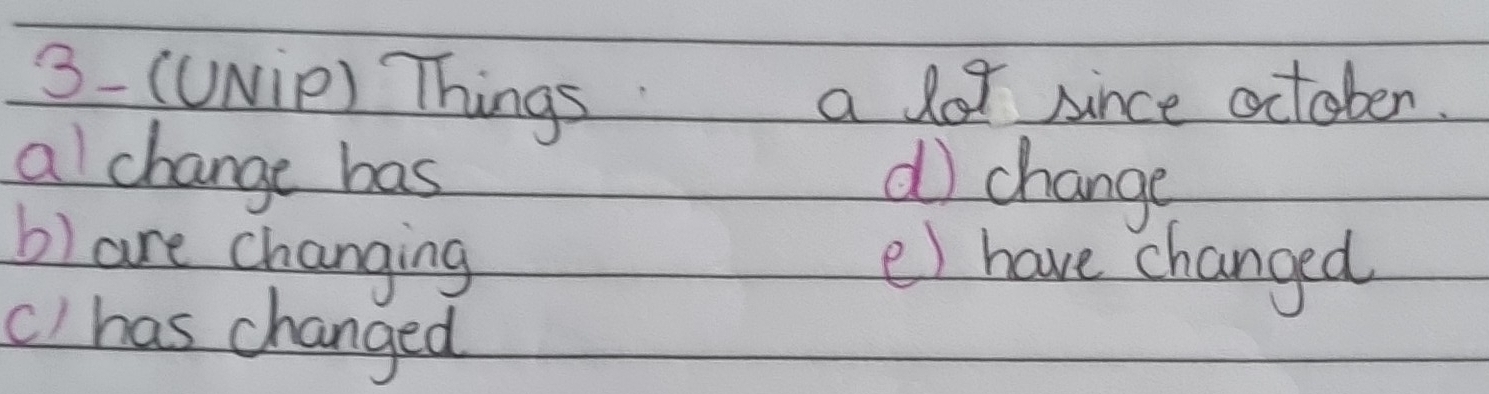 3-(UNIP) Things a lot since october.
a) change has d) change
b) are changing e) have changed
c) has changed